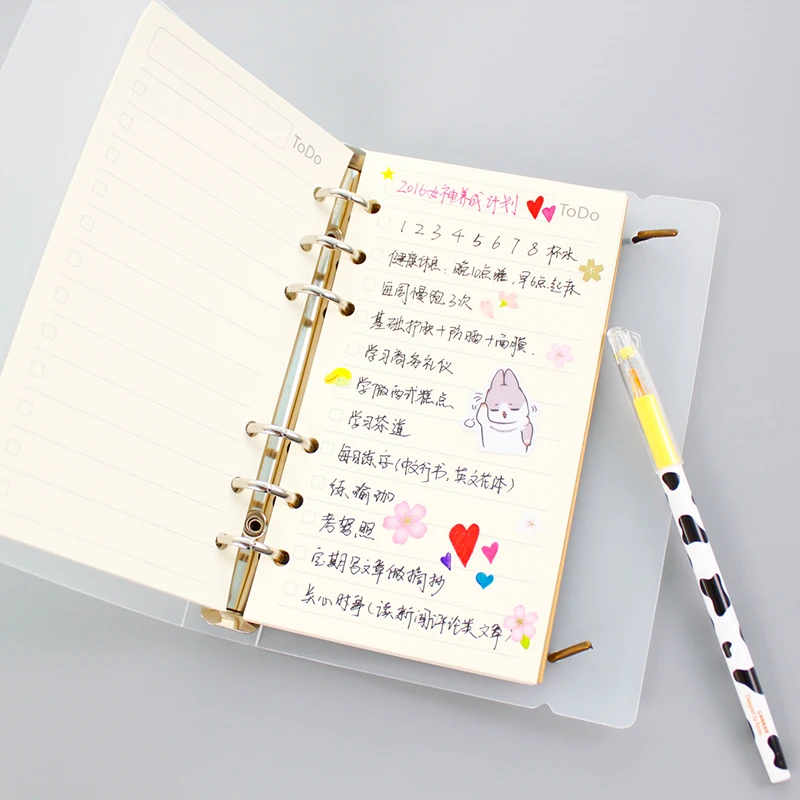 ToDo
2016女神养成计划
ToDo
1 2 3 4 5 6 7 8 杯水
健康休息：晚10点睡，早6点起床
每周慢跑3次
基础护肤+防晒+面膜.
学习商务礼仪
学做西式糕点
学习茶道
每日练字(中文行书,英文花体)
练瑜珈
考驾照
定期写文章做摘抄
关心时事(读新闻评论类文章)